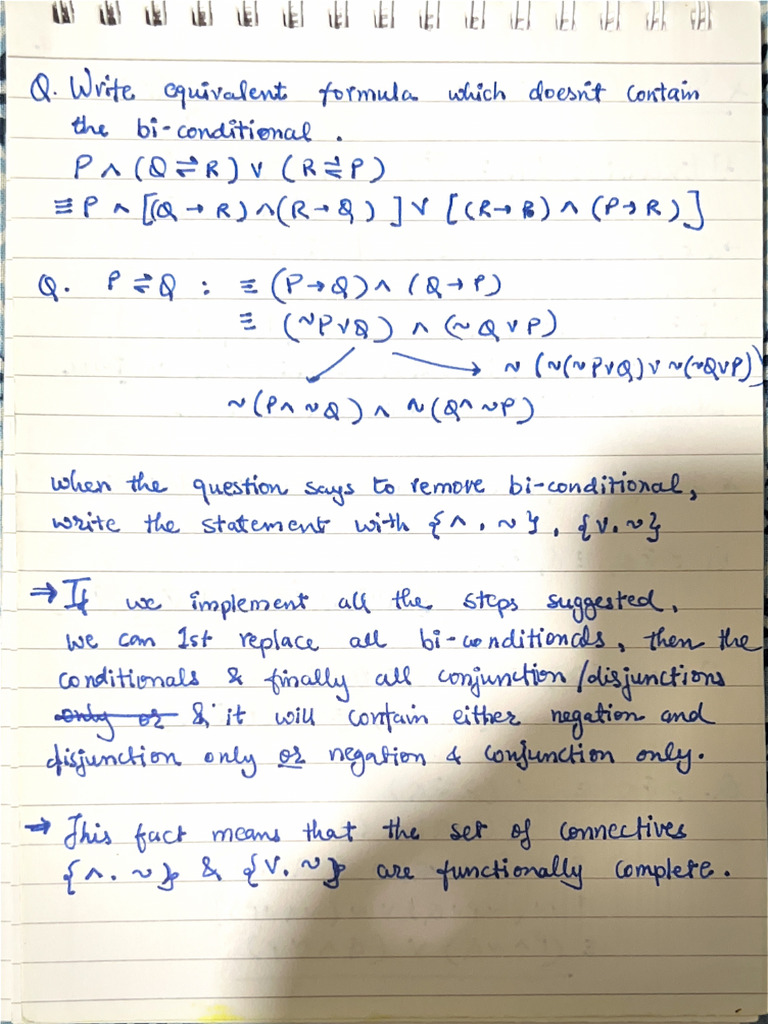 Q. Write equivalent formula which doesn't contain
the bi-conditional.
P ∧ (Q ⇄ R) ∨ (R ⇄ P)
≡ P ∧ [(Q → R) ∧ (R → Q)] ∨ [(R → P) ∧ (P → R)]
Q. P ⇄ Q : ≡ (P → Q) ∧ (Q → P)
≡ (~P ∨ Q) ∧ (~Q ∨ P)
~ (~(~P ∨ Q) ∨ ~(~Q ∨ P))
~(P ∧ ~Q) ∧ ~(Q ∧ ~P)
when the question says to remove bi-conditional,
write the statement with {∧, ~}, {∨, ~}
⇒ If we implement all the steps suggested,
we can 1st replace all bi-conditionals, then the
conditionals & finally all conjunction/disjunctions
only or & it will contain either negation and
disjunction only or negation & conjunction only.
→ This fact means that the set of connectives
{∧, ~} & {∨, ~} are functionally complete.